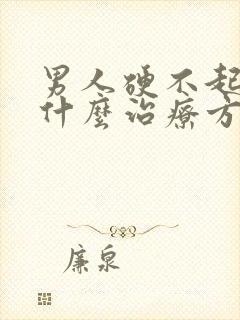 男人硬不起
什麼治療方
廉泉